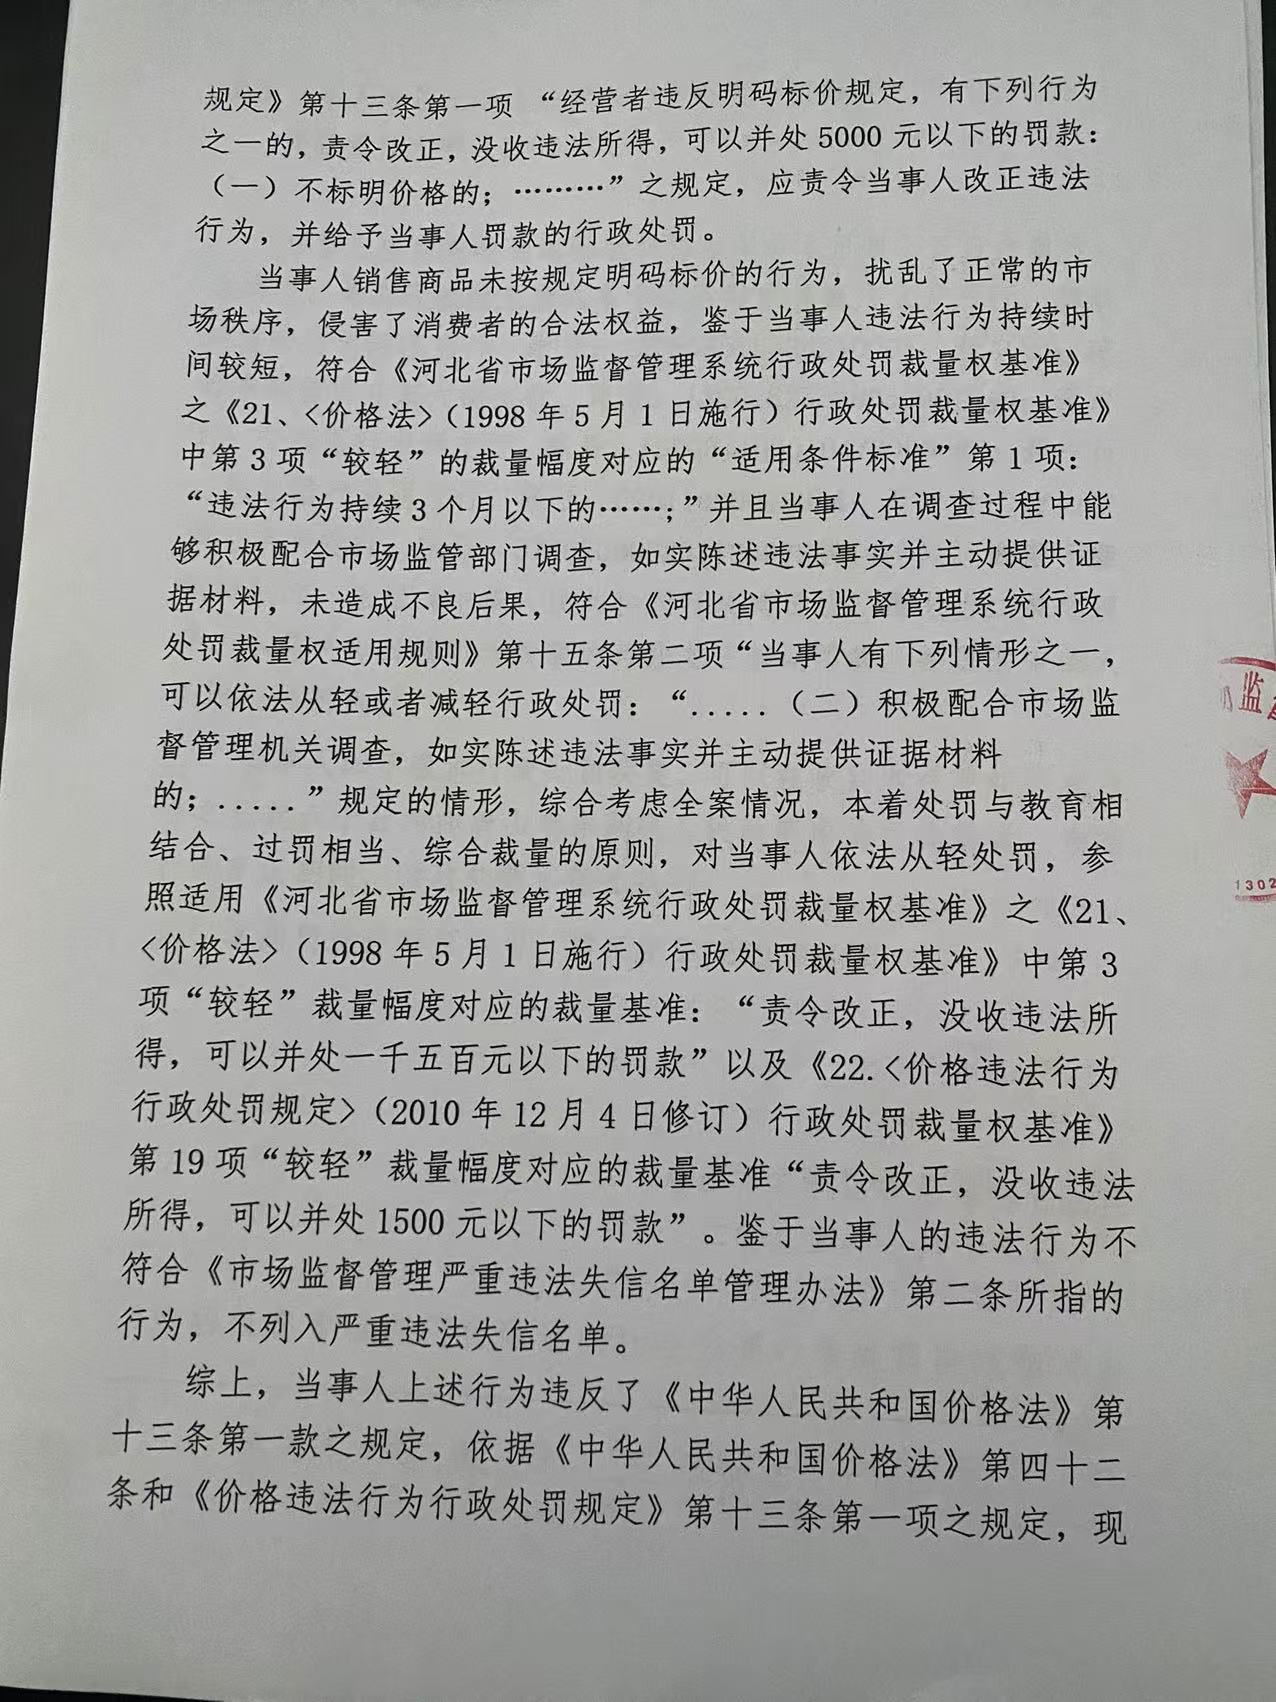 规定》第十三条第一项 “经营者违反明码标价规定，有下列行为
之一的，责令改正，没收违法所得，可以并处 5000 元以下的罚款：
（一）不标明价格的；………”之规定，应责令当事人改正违法
行为，并给予当事人罚款的行政处罚。
当事人销售商品未按规定明码标价的行为，扰乱了正常的市
场秩序，侵害了消费者的合法权益，鉴于当事人违法行为持续时
间较短，符合《河北省市场监督管理系统行政处罚裁量权基准》
之《21、<价格法>（1998 年 5 月 1 日施行）行政处罚裁量权基准》
中第 3 项“较轻”的裁量幅度对应的“适用条件标准”第 1 项：
“违法行为持续 3 个月以下的……；”并且当事人在调查过程中能
够积极配合市场监管部门调查，如实陈述违法事实并主动提供证
据材料，未造成不良后果，符合《河北省市场监督管理系统行政
处罚裁量权适用规则》第十五条第二项“当事人有下列情形之一，
可以依法从轻或者减轻行政处罚：“.....（二）积极配合市场监
督管理机关调查，如实陈述违法事实并主动提供证据材料
的；.....”规定的情形，综合考虑全案情况，本着处罚与教育相
结合、过罚相当、综合裁量的原则，对当事人依法从轻处罚，参
照适用《河北省市场监督管理系统行政处罚裁量权基准》之《21、
<价格法>（1998 年 5 月 1 日施行）行政处罚裁量权基准》中第 3
项“较轻”裁量幅度对应的裁量基准：“责令改正，没收违法所
得，可以并处一千五百元以下的罚款”以及《22.<价格违法行为
行政处罚规定>（2010 年 12 月 4 日修订）行政处罚裁量权基准》
第 19 项“较轻”裁量幅度对应的裁量基准“责令改正，没收违法
所得，可以并处 1500 元以下的罚款”。鉴于当事人的违法行为不
符合《市场监督管理严重违法失信名单管理办法》第二条所指的
行为，不列入严重违法失信名单。
综上，当事人上述行为违反了《中华人民共和国价格法》第
十三条第一款之规定，依据《中华人民共和国价格法》第四十二
条和《价格违法行为行政处罚规定》第十三条第一项之规定，现
监
1302